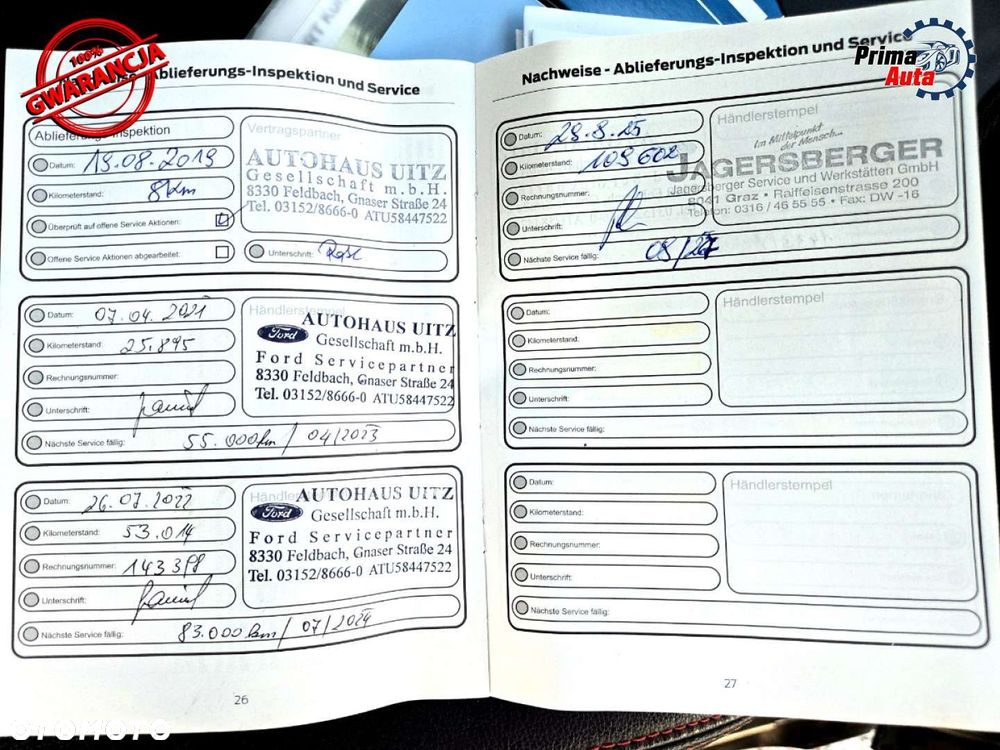 100%
GWARANCJA
Prima
Auta
Ablieferungs-Inspektion und Service
Ablieferungs-Inspektion
Datum: 19.08.2019
Kilometerstand: 8 km
Überprüft auf offene Service Aktionen:
Offene Service Aktionen abgearbeitet:
Vertragspartner
AUTOHAUS UITZ
Gesellschaft m.b.H.
8330 Feldbach, Gnaser Straße 24
Tel. 03152/8666-0 ATU58447522
Unterschrift:
Datum: 07.04.2021
Kilometerstand: 25.895
Rechnungsnummer:
Unterschrift:
Nächste Service fällig: 55.000km / 04/2023
Händlerstempel
Ford
AUTOHAUS UITZ
Gesellschaft m.b.H.
Ford Servicepartner
8330 Feldbach, Gnaser Straße 24
Tel. 03152/8666-0 ATU58447522
Datum: 26.07.2022
Kilometerstand: 53.014
Rechnungsnummer: 143398
Unterschrift:
Nächste Service fällig: 83.000 km / 07/2024
Ford
AUTOHAUS UITZ
Gesellschaft m.b.H.
Ford Servicepartner
8330 Feldbach, Gnaser Straße 24
Tel. 03152/8666-0 ATU58447522
26
Nachweise - Ablieferungs-Inspektion und Service
Datum: 29.8.25
Kilometerstand: 109602
Rechnungsnummer:
Unterschrift:
Nächste Service fällig: 08/27
Händlerstempel
Im Mittelpunkt
der Mensch...
JAGERSBERGER
Jagersberger Service und Werkstätten GmbH
8041 Graz • Raiffeisenstrasse 200
Telefon: 0316 / 46 55 55 • Fax: DW -16
Datum:
Kilometerstand:
Rechnungsnummer:
Unterschrift:
Nächste Service fällig:
Händlerstempel
Datum:
Kilometerstand:
Rechnungsnummer:
Unterschrift:
Nächste Service fällig:
Händlerstempel
27